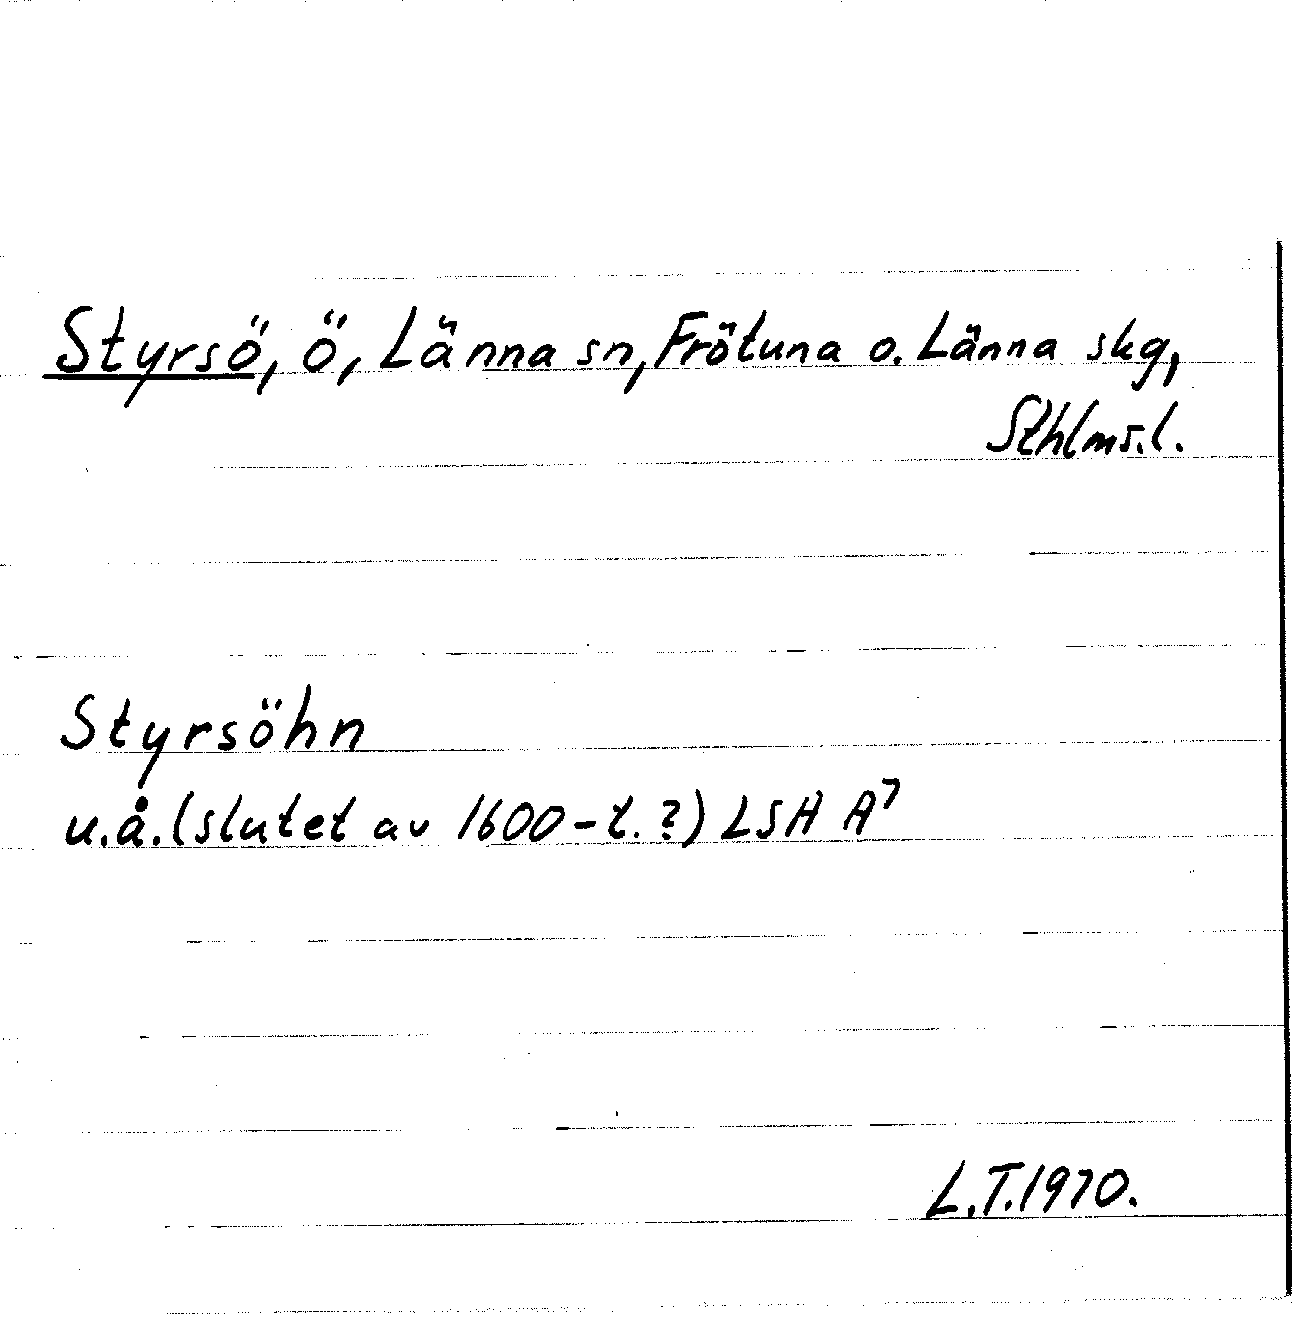 Styrsö, ö, Länna sn, Frötuna o. Länna skg,
Sthlms.l.
Styrsöhn
u.å. (slutet av 1600-t.?) LSH A⁷
L.T. 1970.